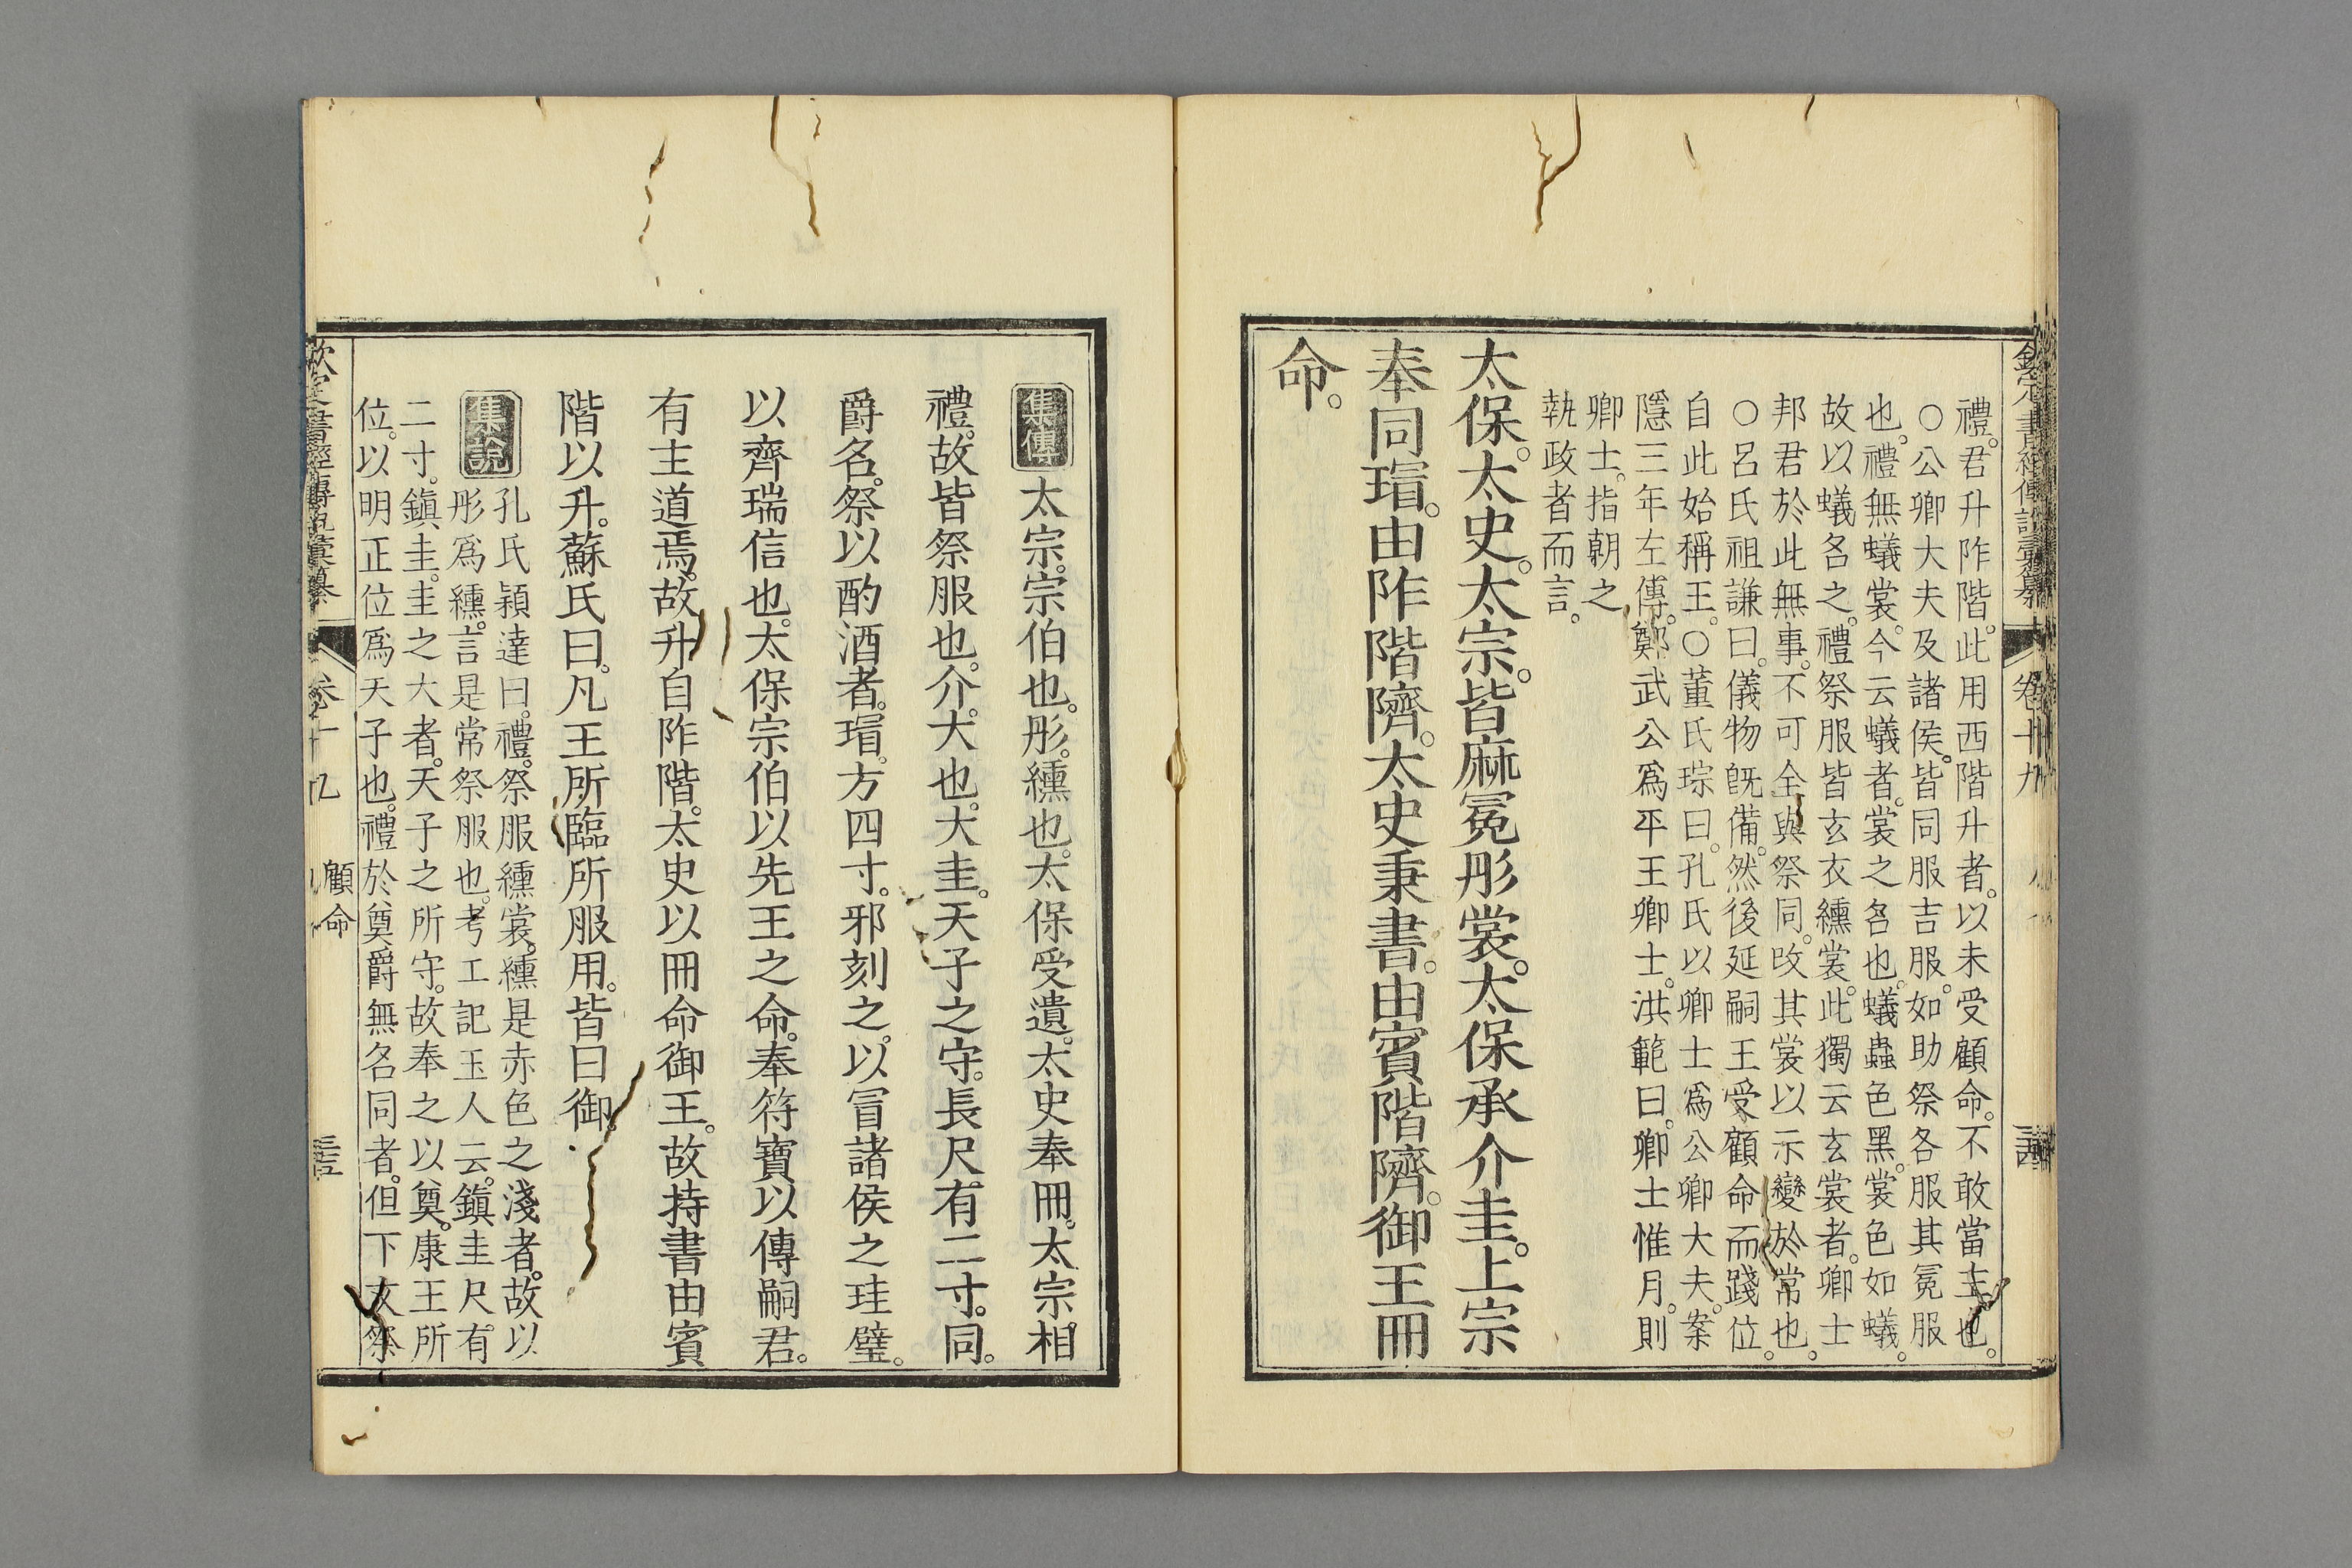 禮。君升阼階。此用西階升者。以未受顧命。不敢當主也。
○公卿大夫及諸侯。皆同服吉服。如助祭各服其冕服
也。禮無蟻裳。今云蟻者。裳之名也。蟻蟲色黑。裳色如蟻。
故以蟻名之。禮祭服皆玄衣纁裳。此獨云玄裳者。卿士
邦君於此無事。不可全與祭同。改其裳以示變於常也。
○呂氏祖謙曰。儀物旣備。然後延嗣王受顧命而踐位。
自此始稱王。○董氏琮曰。孔氏以卿士爲公卿大夫。案
隱三年左傳。鄭武公爲平王卿士。洪範曰。卿士惟月。則
卿士。指朝之
執政者而言。
太保。太史。太宗。皆麻冕彤裳。太保承介圭。上宗
奉同瑁。由阼階隮。太史秉書。由賓階隮。御王冊
命。
集傳
太宗。宗伯也。彤。纁也。太保受遺。太史奉冊。太宗。相
禮。故皆祭服也。介。大也。大圭。天子之守。長尺有二寸。同。
爵名。祭以酌酒者。瑁。方四寸。邪刻之。以冒諸侯之珪璧。
以齊瑞信也。太保宗伯以先王之命。奉符寶以傳嗣君。
有主道焉。故升自阼階。太史以冊命御王。故持書由賓
階以升。蘇氏曰。凡王所臨所服用。皆曰御。
集說
孔氏穎達曰。禮。祭服纁裳。纁是赤色之淺者。故以
彤爲纁。言是常祭服也。考工記玉人云。鎭圭尺有
二寸。鎭圭。圭之大者。天子之所守。故奉之以奠。康王所
位。以明正位爲天子也。禮於奠爵無名同者。但下文祭
欽定書經傳說彙纂
卷十九
顧命